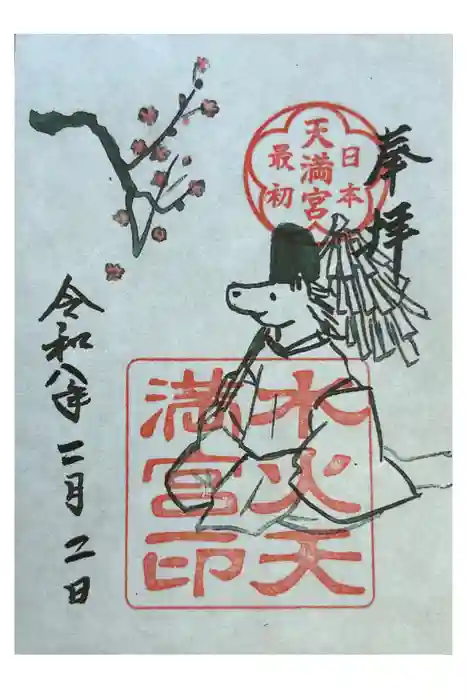 奉拝
日本
最初
天満宮
水火天
満宮印
令和八年 二月 二日